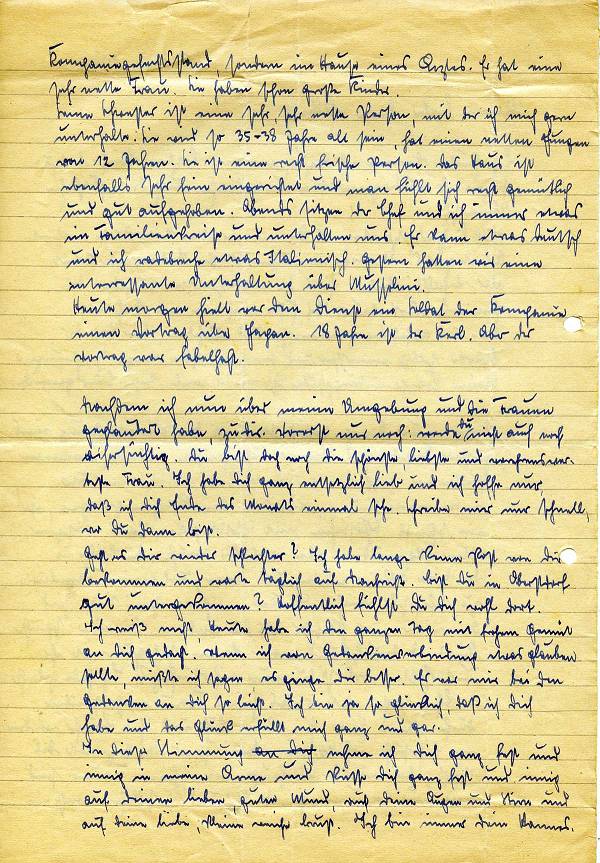 Kompaniegefechtsstand, sondern im Hause eines Arztes. Er hat eine
sehr nette Frau. Sie haben schon große Kinder.
Seine Schwester ist eine sehr, sehr nette Person, mit der ich mich gern
unterhalte. Sie wird so 35-38 Jahre alt sein, hat einen netten Jungen
von 12 Jahren. Sie ist eine recht frische Person. Das Haus ist
ebenfalls sehr fein eingerichtet und man fühlt sich recht gemütlich
und gut aufgehoben. Abends sitzen der Chef und ich immer etwas
im Familienkreise und unterhalten uns. Er kann etwas Deutsch
und ich radebreche etwas Italienisch. Gestern hatten wir eine
interessante Unterhaltung über Mussolini.
Heute morgen hielt vor dem Dienst ein Soldat der Kompanie
einen Vortrag über Hagen. 18 Jahre ist der Kerl. Aber der
Vortrag war fabelhaft.
Nachdem ich nun über meine Umgebung und die Frauen
geplaudert habe, zu dir. Vorerst nur noch: werde du nicht auch noch
eifersüchtig. Du bist doch noch die schönste, liebste und
teste Frau. Ich habe dich ganz entsetzlich lieb und ich hoffe nur,
daß ich dich Ende des Monats einmal sehe. Schreibe mir nur schnell,
wo du dann bist.
Geht es dir wieder schlechter? Ich habe lange keine Post von dir
bekommen und warte täglich auf Nachricht. Bist du in Oberstdorf
gut untergekommen? Hoffentlich fühlst du dich wohl dort.
Ich weiß nicht, heute habe ich den ganzen Tag mit frohem Gemüt
an dich gedacht. Wenn ich von Gedankenverbindung etwas glauben
sollte, müßte ich sagen es ginge dir besser. Es war mir bei den
Gedanken an dich so leicht. Ich bin ja so glücklich, daß ich dich
habe und das Glück erfüllt mich ganz und gar.
In dieser Stimmung an dich nehme ich dich ganz fest und
innig in meine Arme und küsse dich ganz fest und innig
auf deinen lieben, guten Mund, auf deine Augen und Stirn und
auf deine liebe, kleine weiche Brust. Ich bin immer dein Hannes.